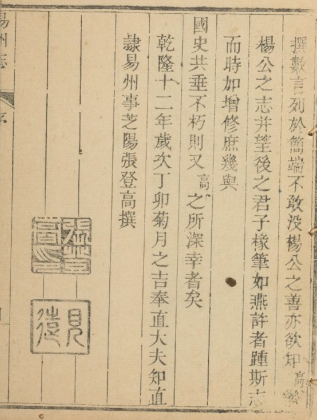 撰數言列於簡端不敢没楊公之善亦欲知高繼
楊公之志并望後之君子椽筆如燕許者踵斯志
而時加增修庶幾與
國史共垂不朽則又高之所深幸者矣
乾隆十二年歲次丁卯菊月之吉奉直大夫知直
隸易州事芝陽張登高撰
見遠
易州志
序